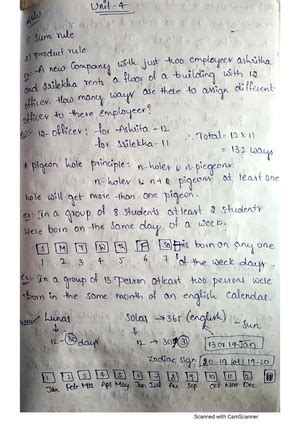 Unit-4
1) Sum rule
2) Product rule
Ex:- A new Company with just two employees ashritha
and Srilekha rents a floor of a building with 12
officer. How many ways are there to assign different
officer to there employees?
12-officer: for Ashrita - 12
for Srilekha - 11
∴ Total = 12 x 11
= 132 ways
* pigeon hole principle: n-holes n-piegeons
n-holes n+k pigeons at least one
hole will get more than one pigeon.
ex: In a group of 8 students at least 2 students
were born on the same day of a week.
S M T W Th F S is born on any one
1 2 3 4 5 6 7 of the week days.
Ex:- In a group of 13 Person atleast two persons were
born in the same month of an english calendar.
Lunar Solar → 365 (english) - Sun
12 - 30 days 12 → 30 31 13 or 14 Jan
Zodiac sign 20-19 (or) 19-20
1 2 3 4 5 6 7 8 9 10 11 12
Jan Feb Mar Apr May Jun Jul Au Sep Oct Nov Dec
Scanned with CamScanner